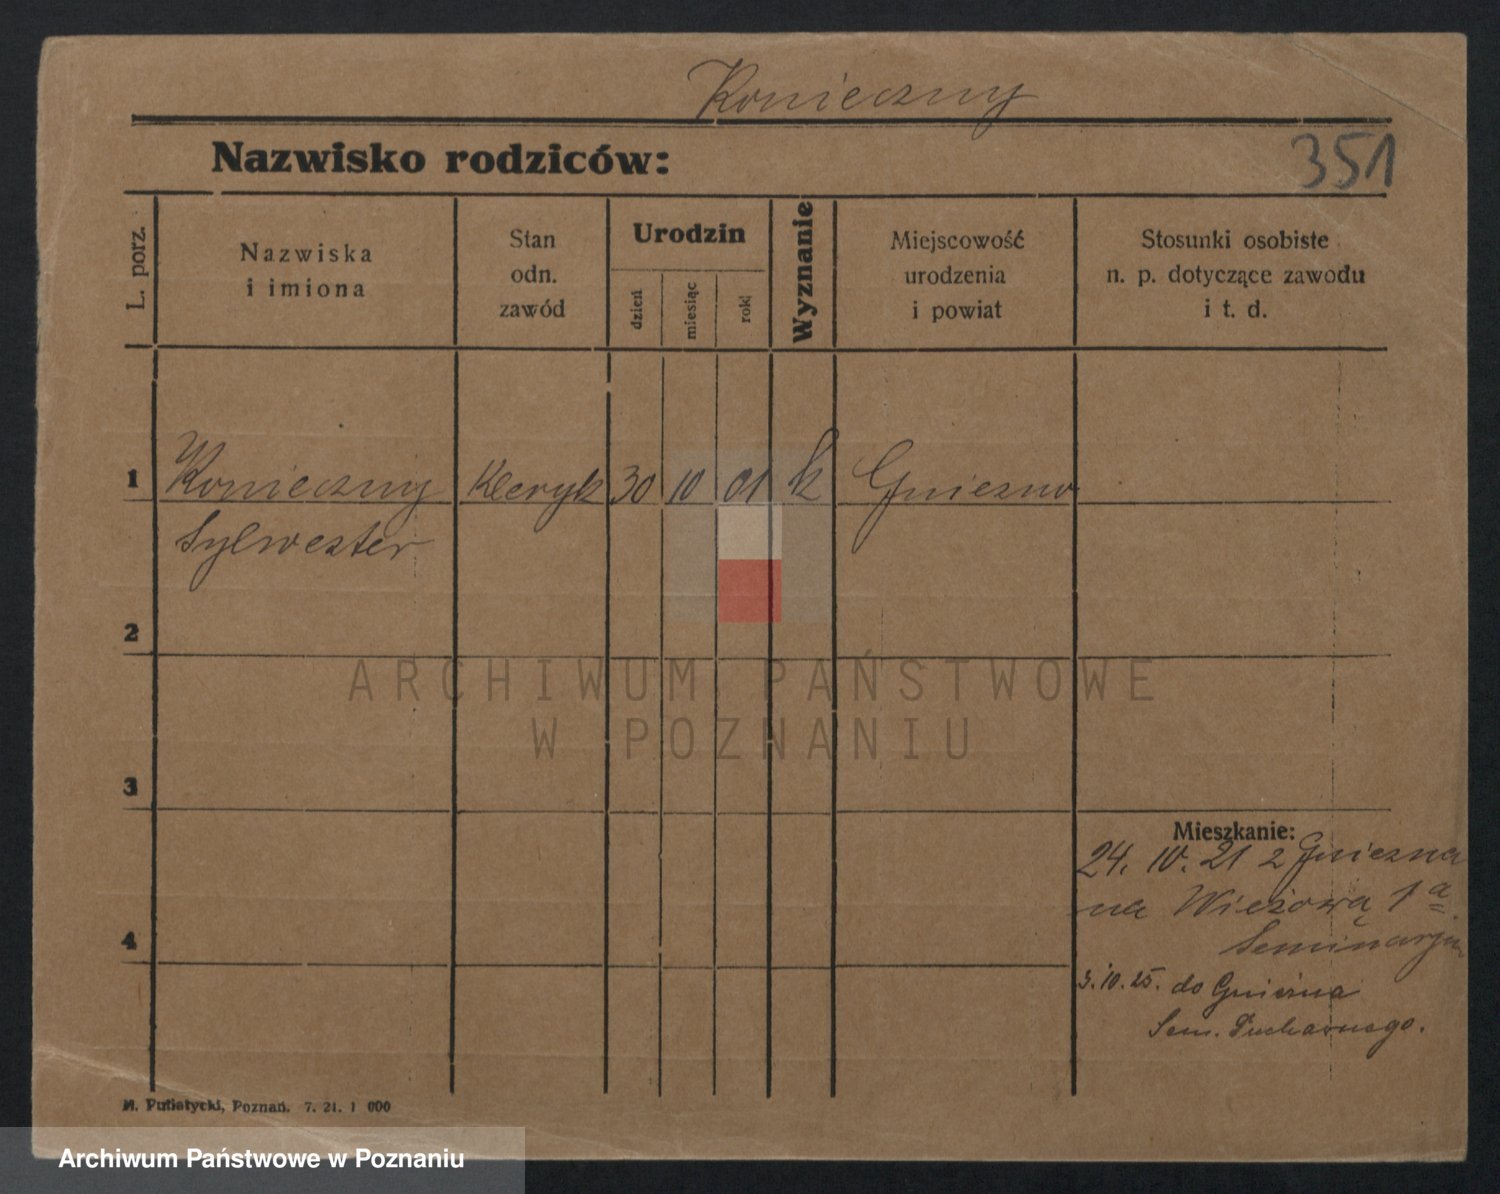 Konieczny
Nazwisko rodziców:
351
L. porz.
Nazwiska
i imiona
Stan
odn.
zawód
Urodzin
dzień
miesiąc
rok
Wyznanie
Miejscowość
urodzenia
i powiat
Stosunki osobiste
n. p. dotyczące zawodu
i t. d.
1 Konieczny Kleryk 30 10 01 k Gniezno
Sylwester
2
3
4
Mieszkanie:
24. 10. 21 z Gniezna
na Wieżową 1a
Seminarjum
3.10.25. do Gniezna
Sem. Duchownego.
M. Putiatycki, Poznań. 7. 21. 1 000
ARCHIWUM PAŃSTWOWE
W POZNANIU
Archiwum Państwowe w Poznaniu